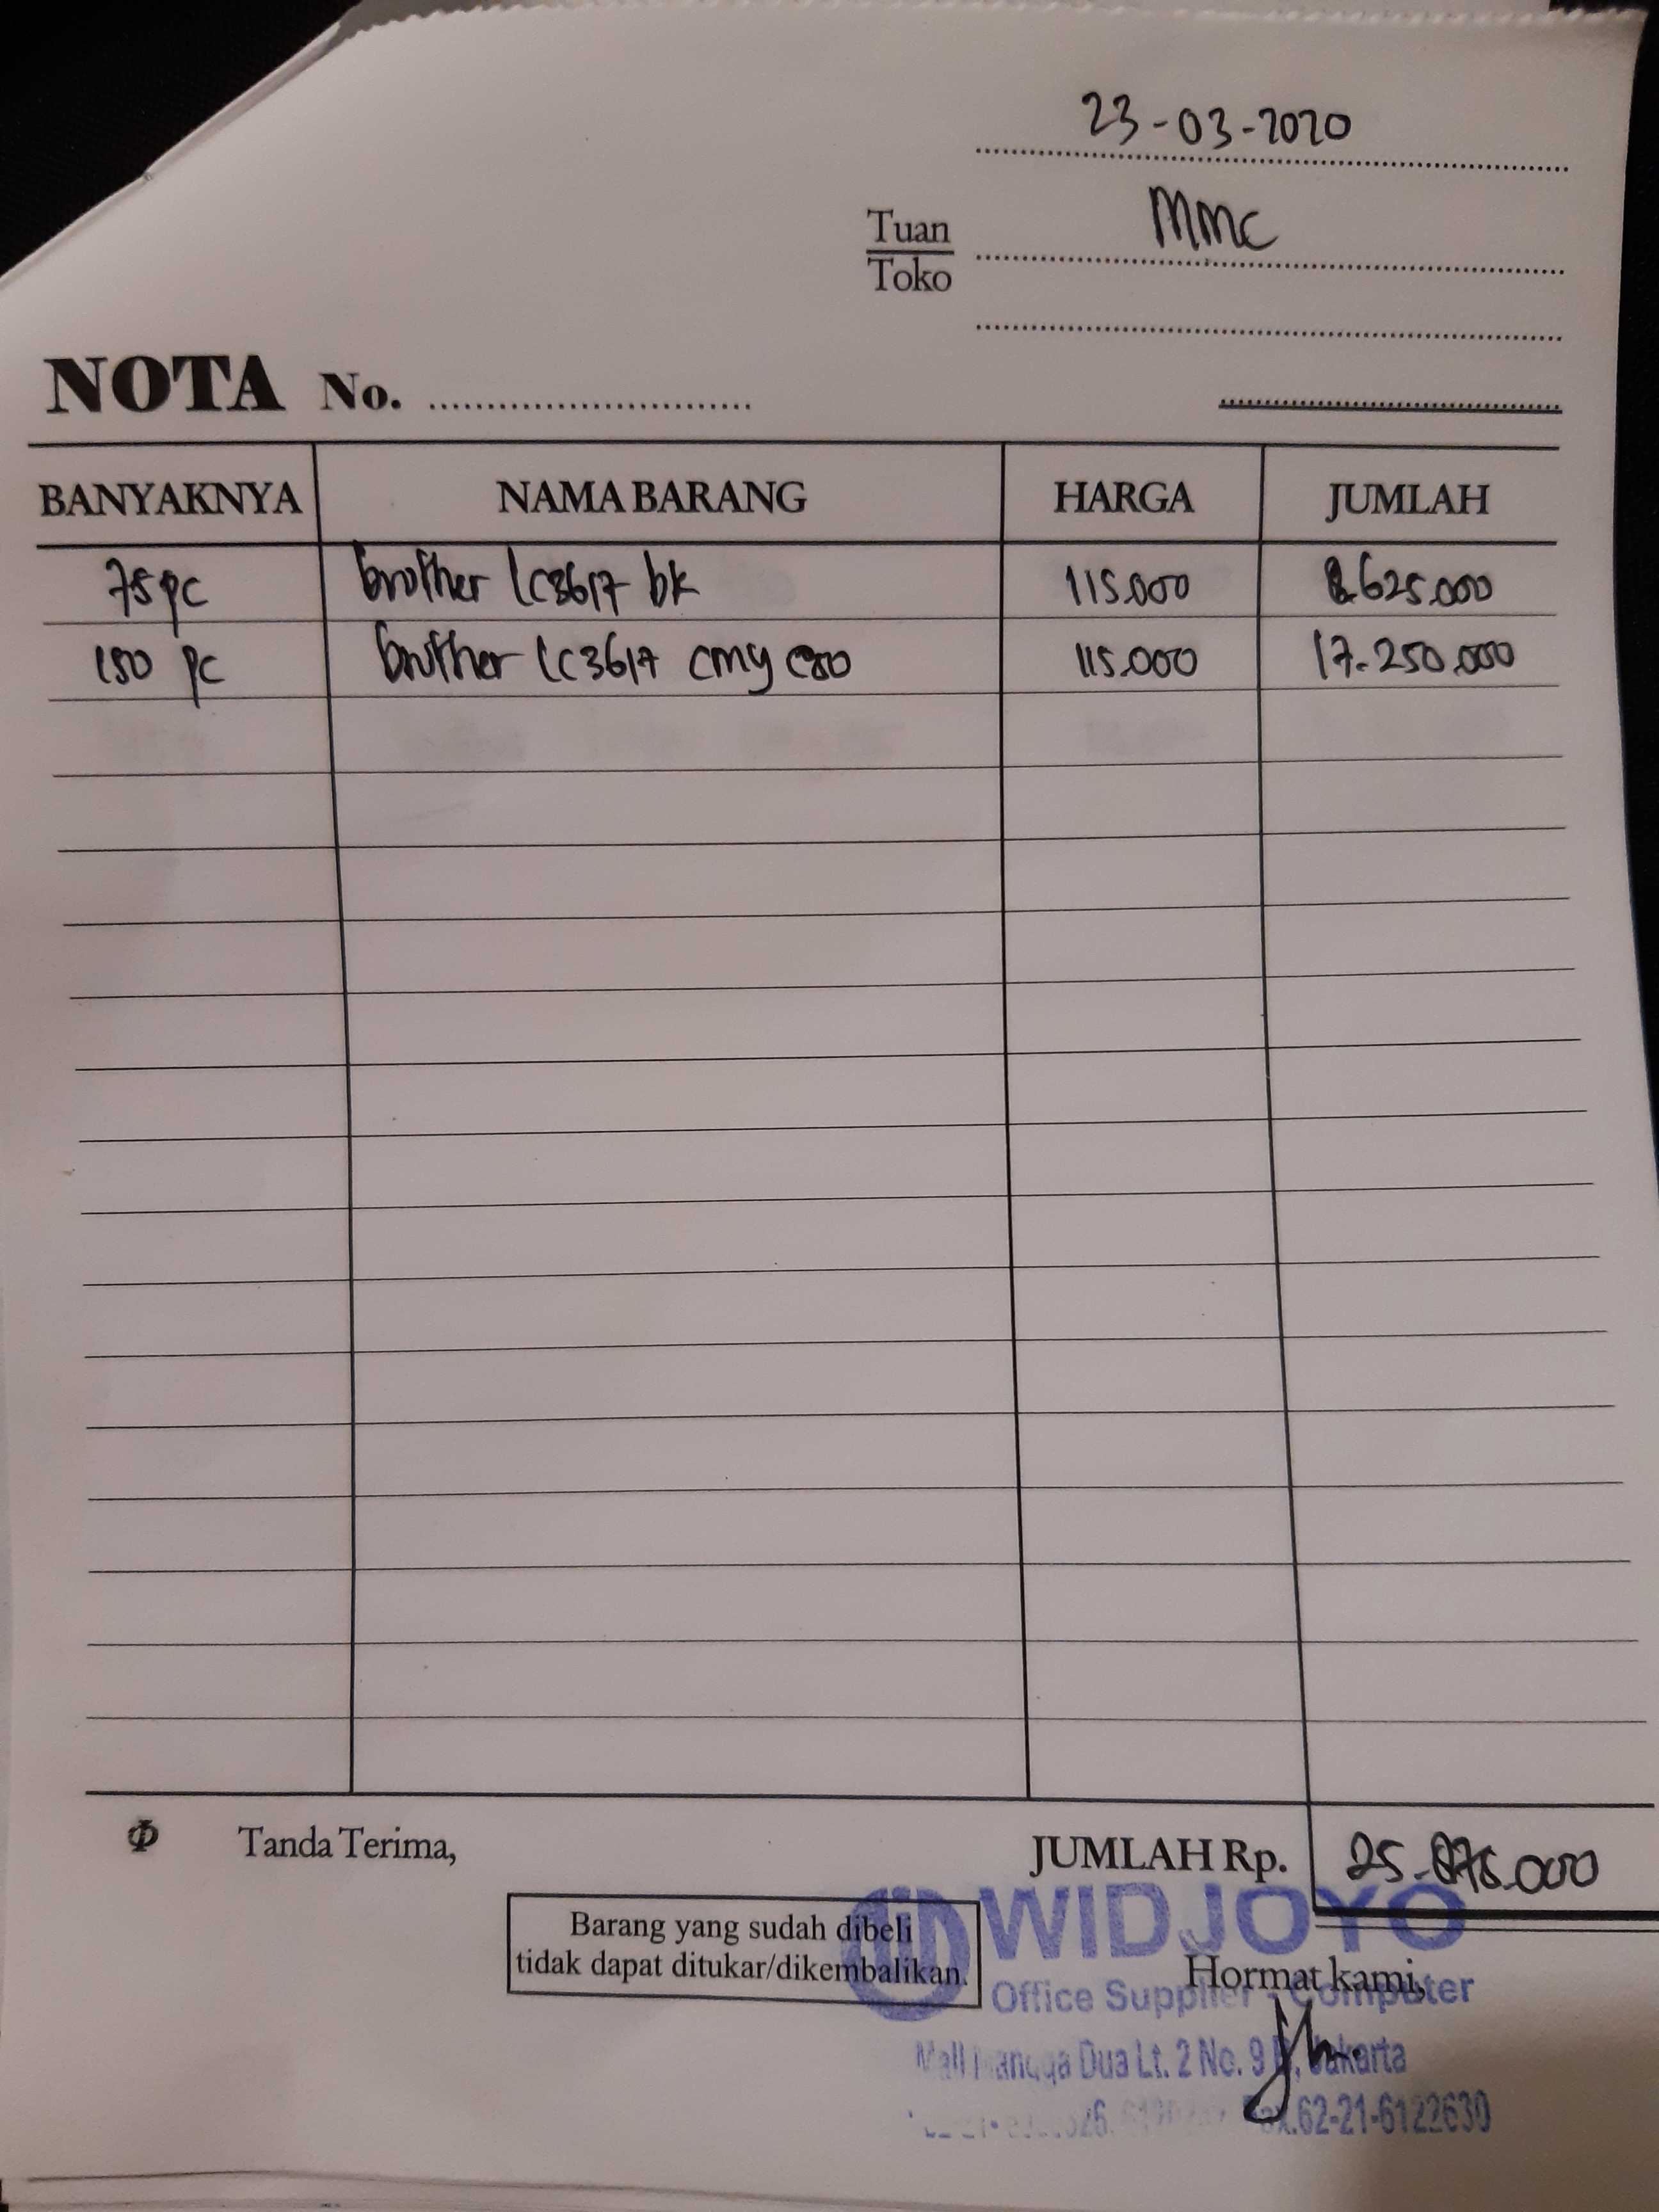 23-03-2020
Tuan
Toko
MMC
NOTA No.
BANYAKNYA NAMA BARANG HARGA JUMLAH
75 pc brother lc3617 bk 115.000 8.625.000
150 pc brother lc3617 cmy 115.000 17.250.000
Tanda Terima, JUMLAH Rp. 25.875.000
Barang yang sudah dibeli
tidak dapat ditukar/dikembalikan.
WIDJOYO
Hormat kami,
Office Supplier - Computer
Mall Mangga Dua Lt. 2 No. 9 Jakarta
Fax.62-21-6122630